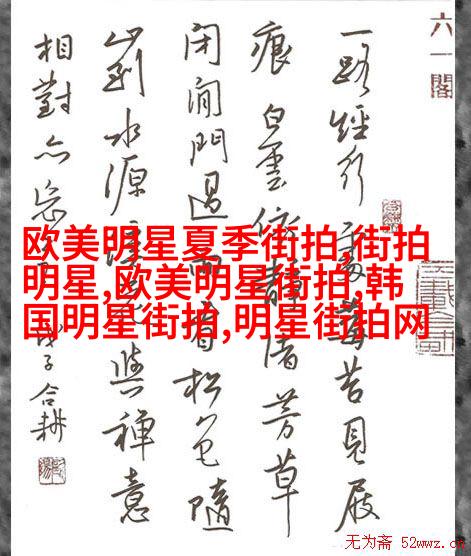 六一閣
一路經行處莓苔見屐
痕白雲依靜渚芳草
閉閒門過雨看松色隨
山到水源溪花與禪意
相對亦忘言
戊子合耕
欧美明星夏季街拍,街拍
明星,欧美明星街拍,韩
国明星街拍,明星街拍网
无为斋 52wwz.cn